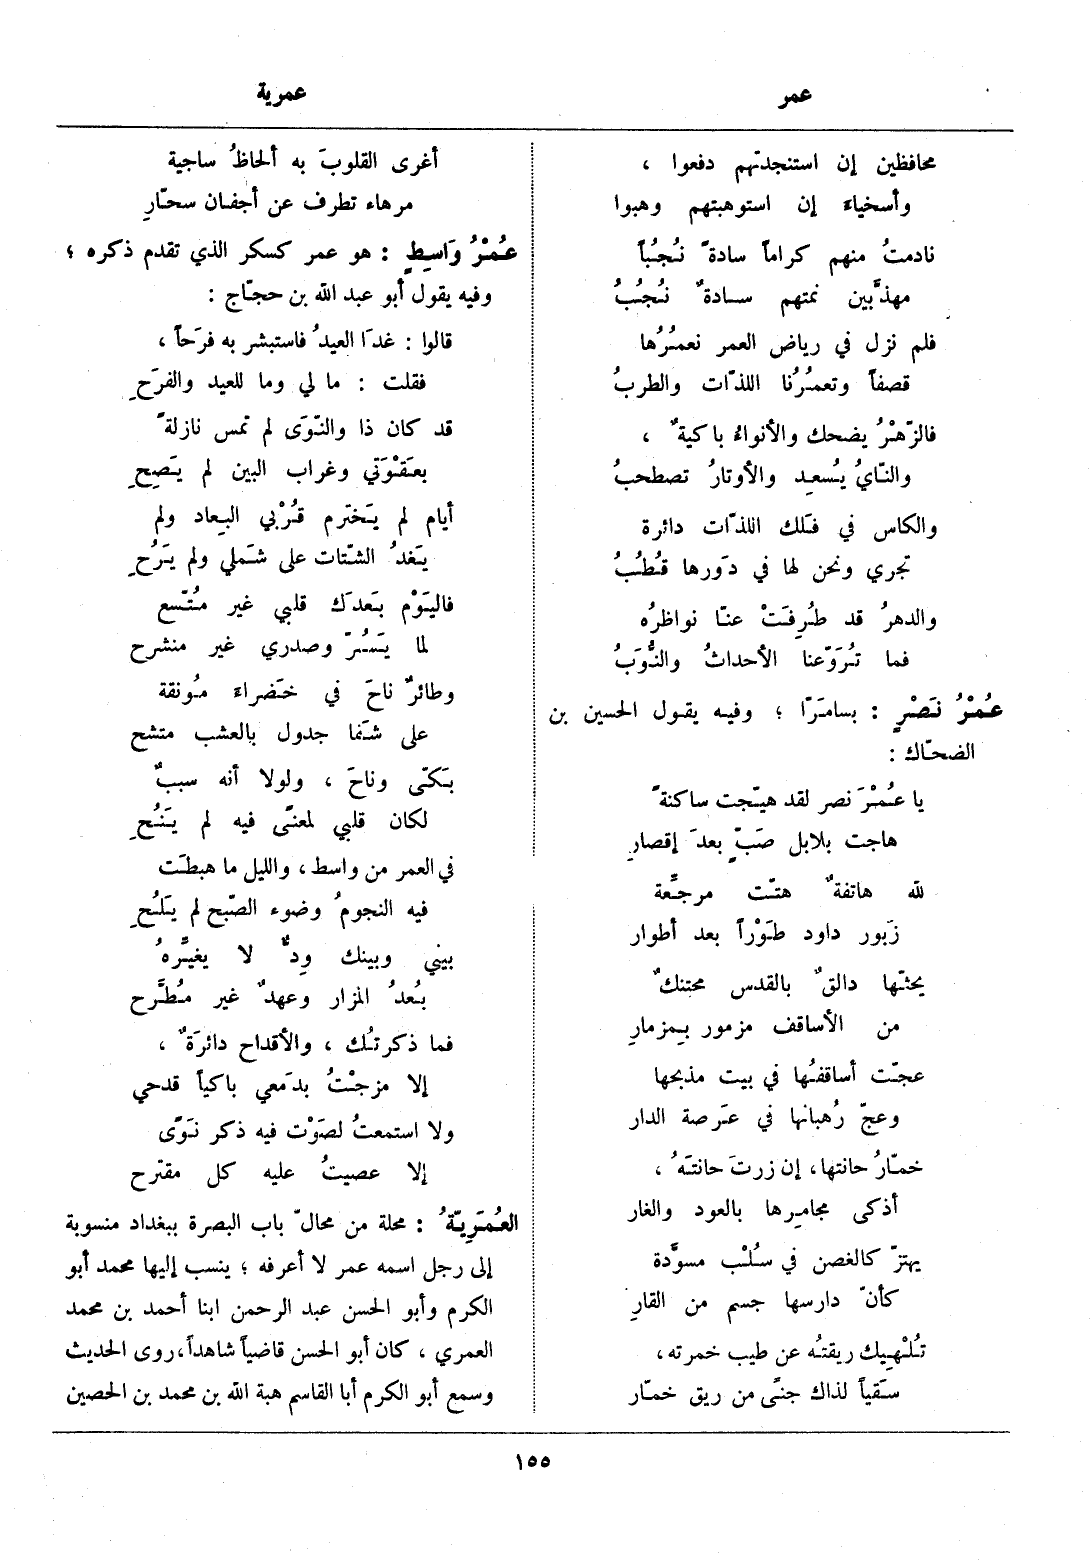 عمر
عمرية
محافظين إن استنجدتهم دفعوا ،
وأسخياء إن استوهبتهم وهبوا
نادمتُ منهم كراماً سادةً نُجُباً
مهذَّبين نمتهم سادةٌ نُجُبُ
فلم نزل في رياض العمر نعمُرُها
قصفاً وتعمُرُنا اللذّات والطربُ
فالزّهْرُ يضحك والأنواءُ باكيةٌ ،
والنّايُ يُسعِد والأوتارُ تصطحبُ
والكاس في فَلَك اللذّات دائرة
تجري ونحن لها في دَورها قُطُبُ
والدهرُ قد طُرِفَتْ عنّا نواظرُه
فما تُرَوّعنا الأحداثُ والنُّوَبُ
عُمْرُ نَصْرٍ : بسامَرّا ؛ وفيه يقول الحسين بن
الضحّاك :
يا عُمْرَ نصر لقد هيّجت ساكنةً
هاجت بلابل صَبٍّ بعدَ إقصارِ
لله هاتفةٌ هتّت مرجَّعة
زَبور داود طَوْراً بعد أطوار
يحثّها دالقٌ بالقدس محتنكٌ
من الأساقف مزمور بِمزمارِ
عجّت أساقفُها في بيت مذبحها
وعجّ رُهبانها في عَرصة الدار
خمّارُ حانتها، إن زرتَ حانتَهُ ،
أذكى مجامِرها بالعود والغار
يهتزّ كالغصن في سُلْب مسوَّدة
كأنّ دارسها جسم من القارِ
تُلْهِيك ريقتُه عن طيب خمرته،
سَقياً لذاك جنًى من ريق خمّار
أغرى القلوبَ به ألحاظُ ساجية
مرهاء تطرف عن أجفان سحّارِ
عُمْرُ وَاسِطٍ : هو عمر كسكر الذي تقدم ذكره ؛
وفيه يقول أبو عبد الله بن حجّاج :
قالوا : غدَا العيدُ فاستبشر به فَرَحاً ،
فقلت : ما لي وما للعيد والفرَحِ
قد كان ذا والنّوَى لم تمس نازلةً
بعَقْوَتي وغراب البين لم يَصِحِ
أيام لم يَخترم قُرْبي البِعاد ولم
يَغدُ الشّتات على شَملي ولم يَرُحِ
فاليَوْم بَعدَك قلبي غير مُتّسع
لما يَسُرّ وصدري غير منشرح
وطائرٌ ناحَ في خَضراءَ مُونقة
على شَفا جدول بالعشب متشح
بَكّى وناحَ ، ولولا أنه سببٌ
لكان قلبي لمعنًى فيه لم يَنُحِ
في العمر من واسط، والليل ما هبطَت
فيه النجومُ وضوء الصّبح لم يَلُحِ
بيني وبينك وِدٌّ لا يغيّرهُ
بُعدُ المزار وعهدٌ غير مُطَّرح
فما ذكرتُك ، والأقداح دائرَةٌ ،
إلا مزجْتُ بدَمعي باكياً قدحي
ولا استمعتُ لصَوْت فيه ذكر نَوًى
إلا عصيتُ عليه كل مقترح
العُمَرِيّةُ : محلة من محالّ باب البصرة ببغداد منسوبة
إلى رجل اسمه عمر لا أعرفه ؛ ينسب إليها محمد أبو
الكرم وأبو الحسن عبد الرحمن ابنا أحمد بن محمد
العمري ، كان أبو الحسن قاضياً شاهداً، روى الحديث
وسمع أبو الكرم أبا القاسم هبة الله بن محمد بن الحصين
١٥٥